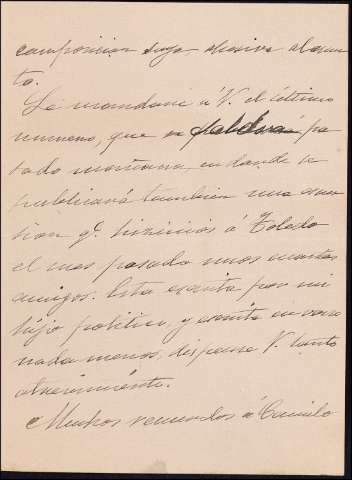 composicion suya alusiva al asun-
to.
Le mandaré á V. el último
numero, que se pa-
sado mañana, en donde se
publicará tambien una excur-
sion q.e hicimos á Toledo
el mes pasado unos cuantos
amigos. Esta escrita por mi
hijo politico, y escrita en verso
nada menos, dispense V. tanto
atrevimiento.
Muchos recuerdos á Camilo